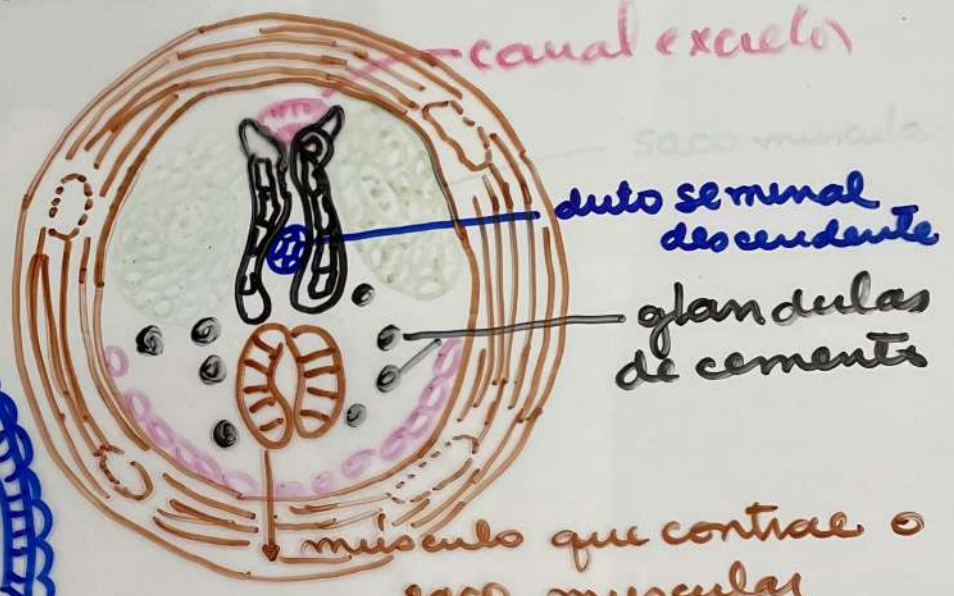 canal excretor
saco muscular
duto seminal
descendente
glandulas
de cemento
músculo que contrae o
saco muscular